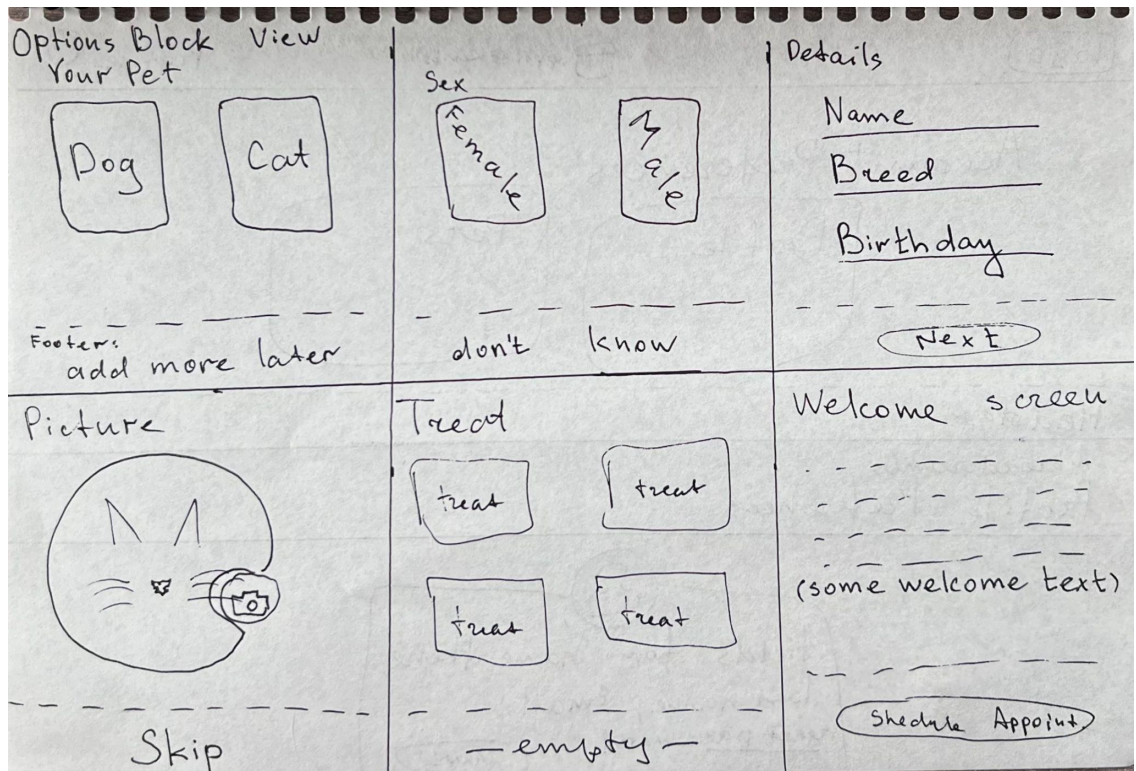 Options Block View
Your Pet
Dog
Cat
Footer:
add more later
Sex
Female
Male
don't know
Details
Name
Breed
Birthday
Next
Picture
Skip
Treat
treat
treat
treat
treat
- empty -
Welcome screen
(some welcome text)
Shedule Appoint